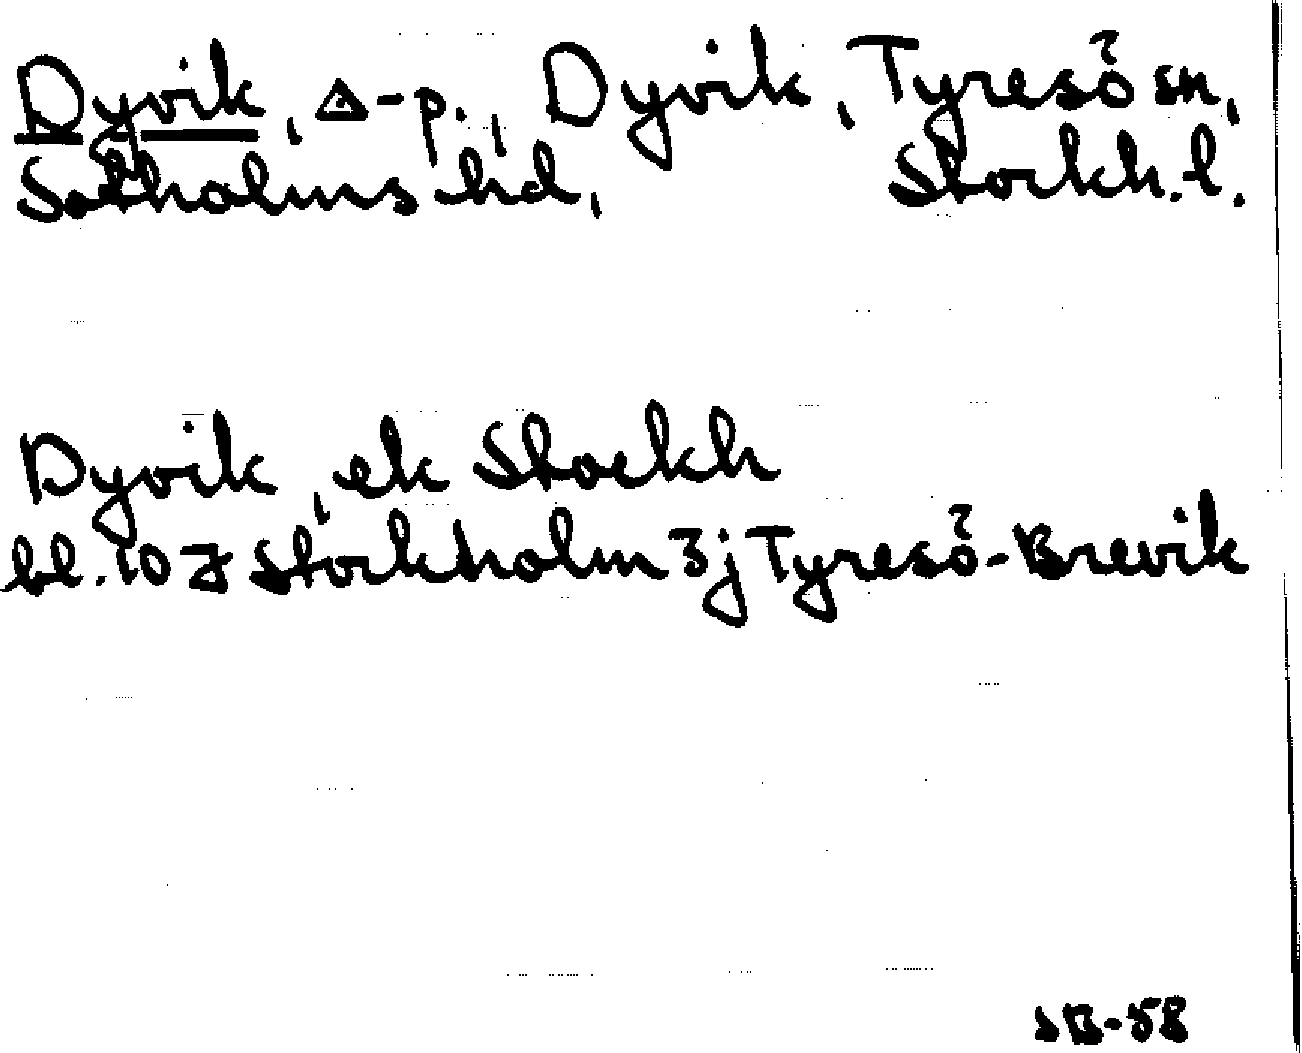 Dyvik, △-p., Dyvik, Tyresö sn,
Sotholms hd, Stockh. l.
Dyvik, ek Stockh
bl. 10 7 Stockholm 3j Tyresö-Brevik
SB-58